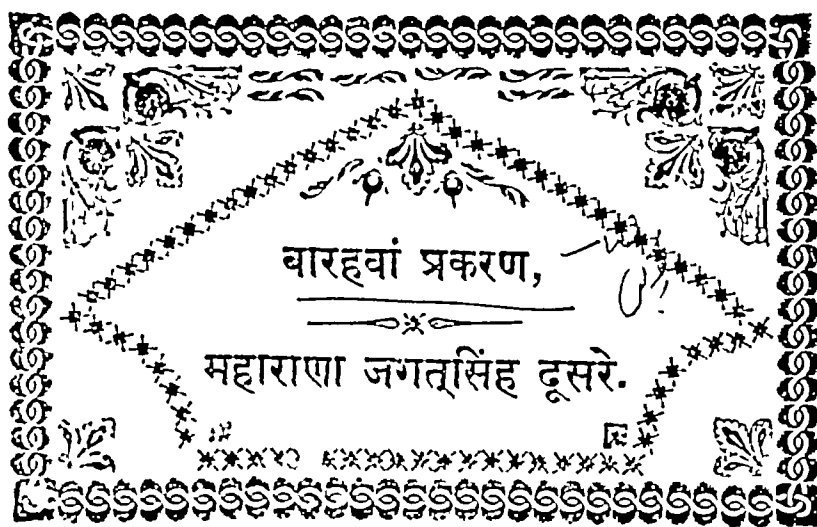 वारहवां प्रकरण,
महाराणा जगत्सिंह दूसरे.